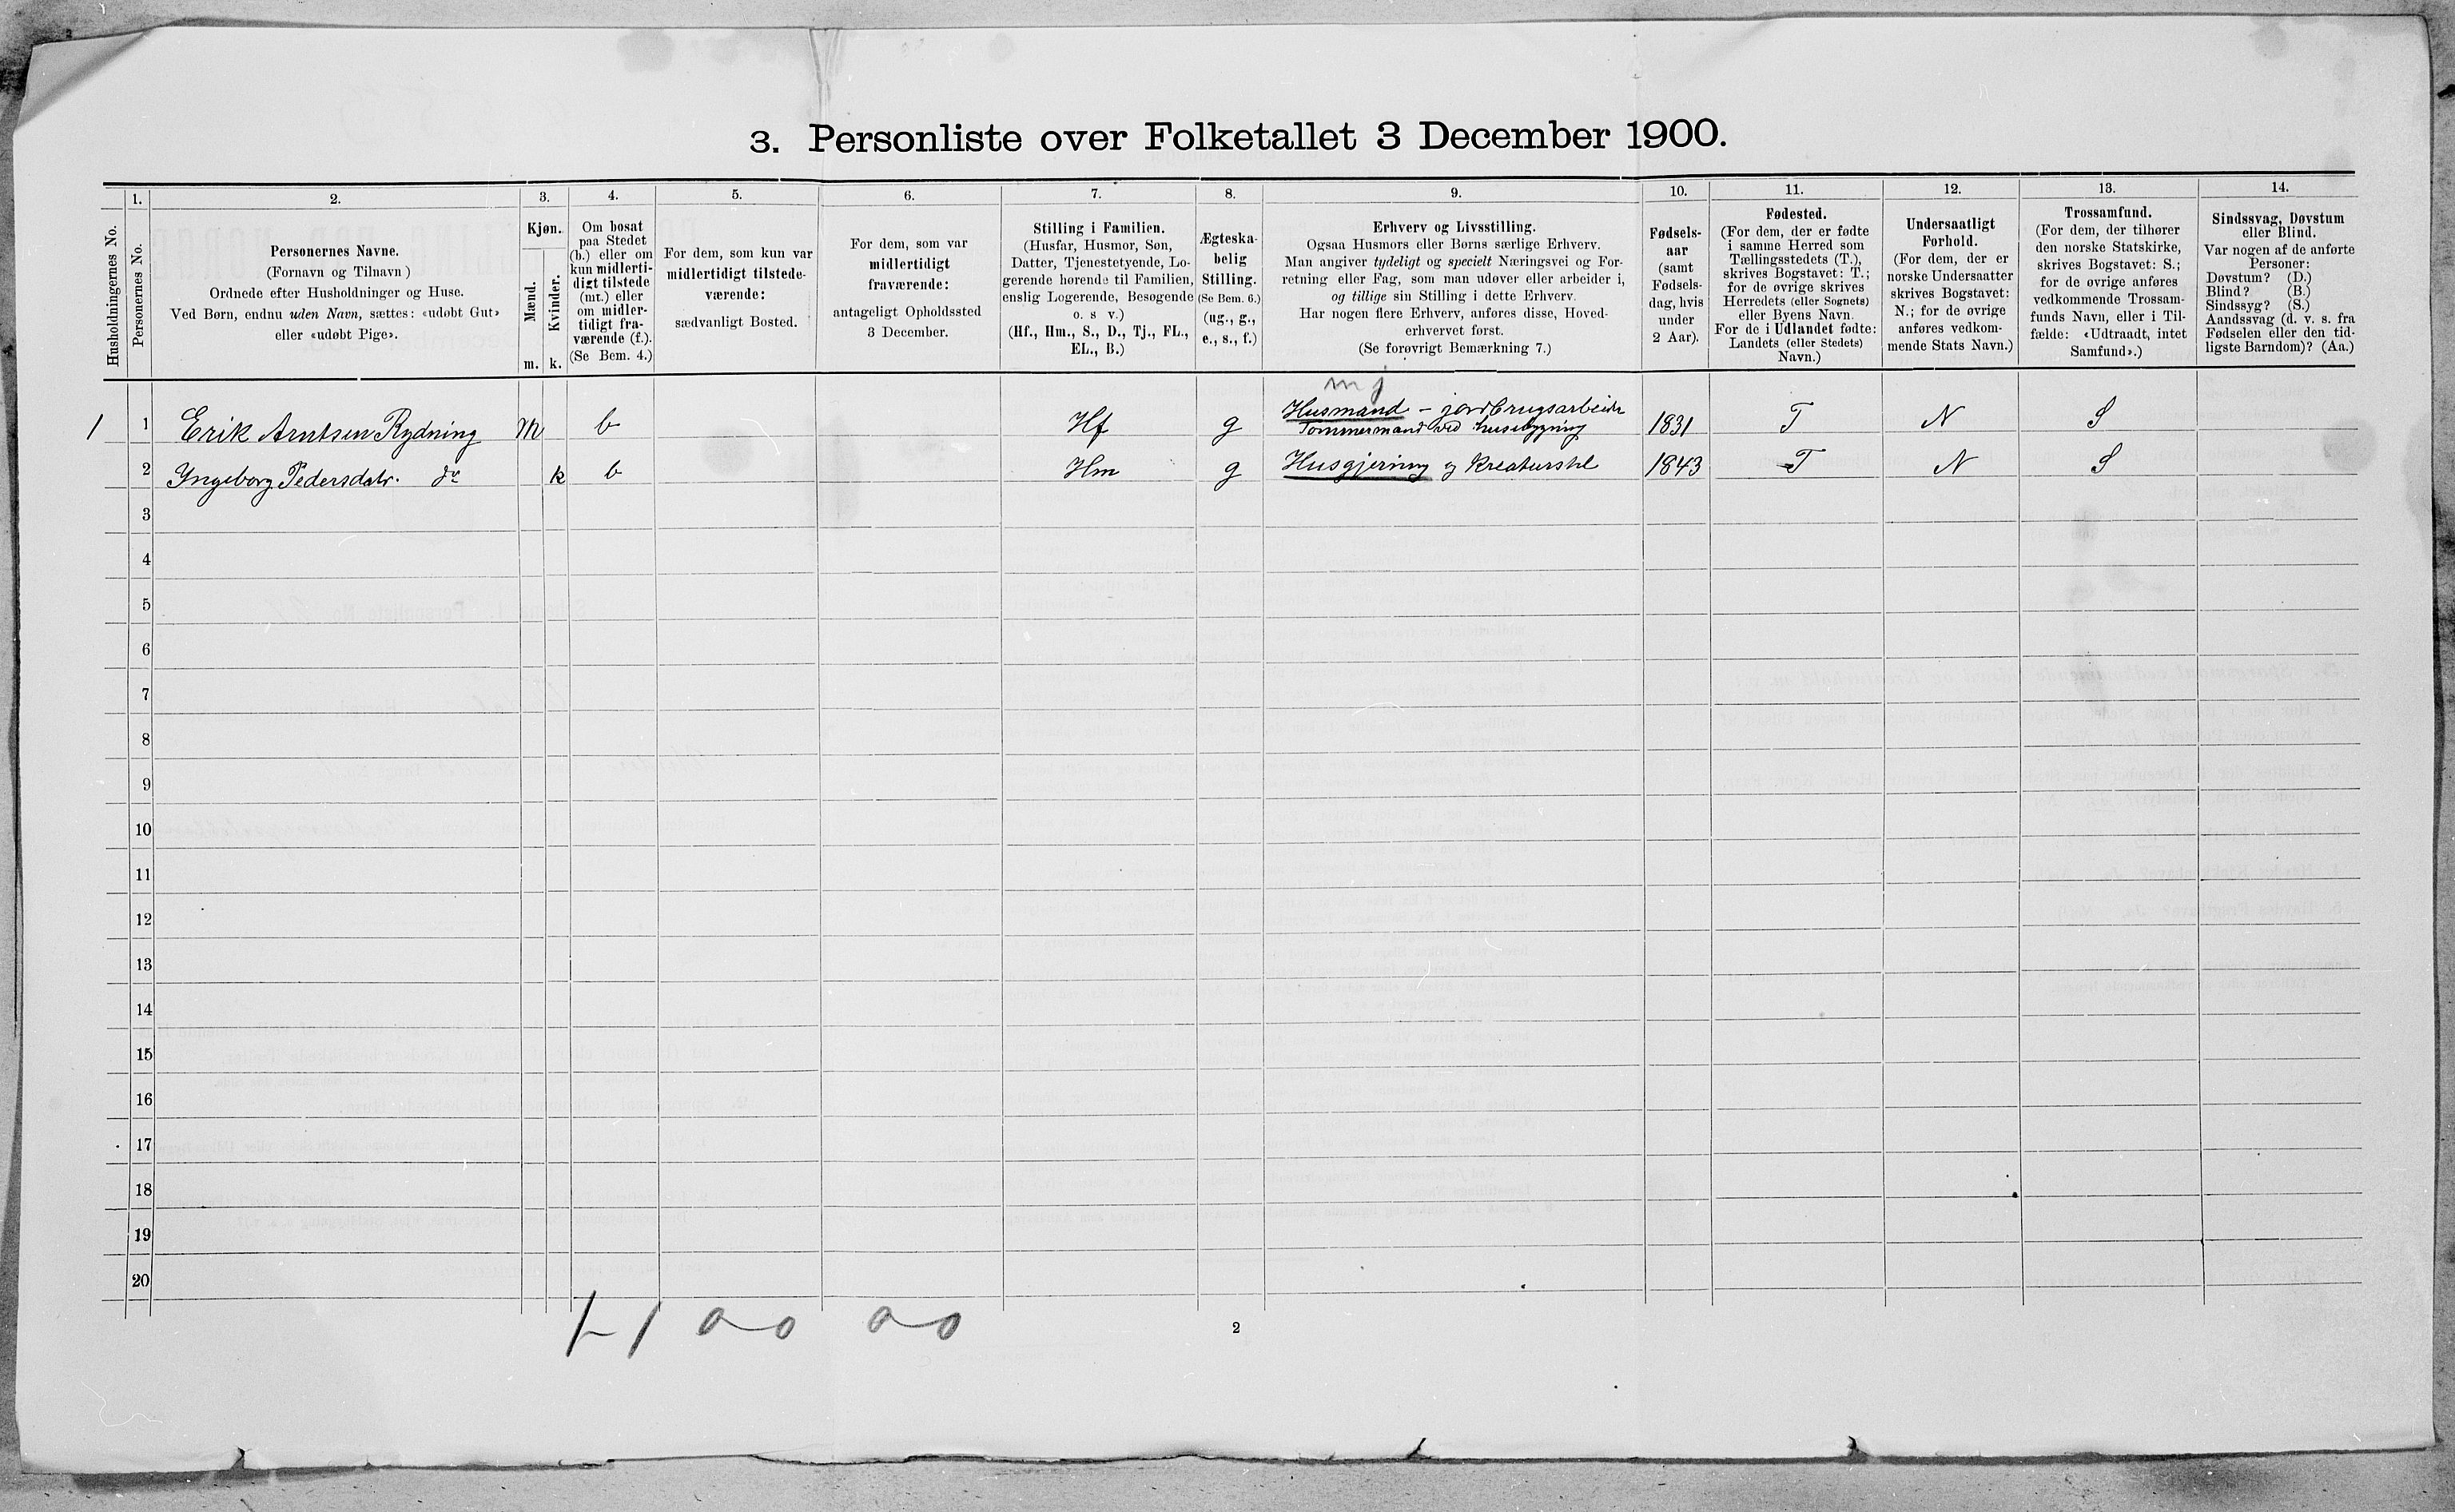 3. Personliste over Folketallet 3 December 1900.
Husholdningernes No.
1.
Personernes No.
2.
Personernes Navne.
(Fornavn og Tilnavn)
Ordnede efter Husholdninger og Huse.
Ved Børn, endnu uden Navn, sættes: «udøbt Gut»
eller «udøbt Pige».
3.
Kjøn.
Mænd.
Kvinder.
m. k.
4.
Om bosat
paa Stedet
(b.) eller om
kun midlerti-
digt tilstede
(mt.) eller
om midler-
tidigt fra-
værende (f.).
(Se Bem. 4.)
5.
For dem, som kun var
midlertidigt tilstede-
værende:
sædvanligt Bosted.
6.
For dem, som var
midlertidigt
fraværende:
antageligt Opholdssted
3 December.
7.
Stilling i Familien.
(Husfar, Husmor, Søn,
Datter, Tjenestetyende, Lo-
gerende hørende til Familien,
enslig Logerende, Besøgende
o. s v.)
(Hf., Hm., S., D., Tj., FL.,
EL., B.)
8.
Ægteska-
belig
Stilling.
(Se Bem. 6.)
(ug., g.,
e., s., f.)
9.
Erhverv og Livsstilling.
Ogsaa Husmors eller Børns særlige Erhverv.
Man angiver tydeligt og specielt Næringsvei og For-
retning eller Fag, som man udøver eller arbeider i,
og tillige sin Stilling i dette Erhverv.
Har nogen flere Erhverv, anføres disse, Hoved-
erhvervet først.
(Se forøvrigt Bemærkning 7.)
10.
Fødsels-
aar
(samt
Fødsels-
dag, hvis
under
2 Aar).
11.
Fødested.
(For dem, der er fødte
i samme Herred som
Tællingsstedets (T.),
skrives Bogstavet: T.;
for de øvrige skrives
Herredets (eller Sognets)
eller Byens Navn.
For de i Udlandet fødte:
Landets (eller Stedets)
Navn.)
12.
Undersaatligt
Forhold.
(For dem, der er
norske Undersaatter
skrives Bogstavet:
N.; for de øvrige
anføres vedkom-
mende Stats Navn.)
13.
Trossamfund.
(For dem, der tilhører
den norske Statskirke,
skrives Bogstavet: S.;
for de øvrige anføres
vedkommende Trossam-
funds Navn, eller i Til-
fælde: «Udtraadt, intet
Samfund».)
14.
Sindssvag, Døvstum
eller Blind.
Var nogen af de anførte
Personer:
Døvstum? (D.)
Blind? (B.)
Sindssyg? (S.)
Aandssvag (d. v. s. fra
Fødselen eller den tid-
ligste Barndom)? (Aa.)
m j
1 1 Erik Arntsen Rydning m b Hf g Husmand - jordbrugsarbeide 1831 T N S
Tømmermand ved husebygning
2 Yngeborg Pedersdatr. do k b Hm g Husgjerning og Kreaturstel 1843 T N S
3
4
5
6
7
8
9
10
11
12
13
14
15
16
17
18
19
20
1-1 0-0 0-0
2